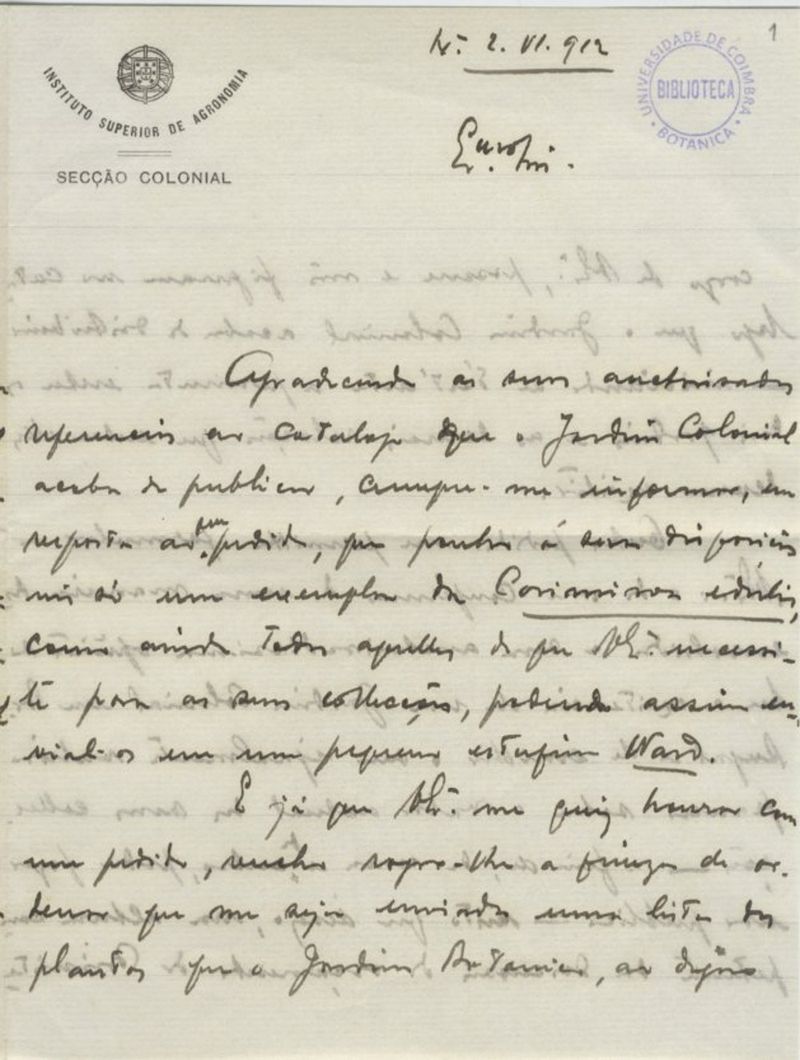 1
INSTITUTO SUPERIOR DE AGRONOMIA
SECÇÃO COLONIAL
2. VI. 912
UNIVERSIDADE DE COIMBRA
BIBLIOTECA
BOTANICA
Agradecendo as suas auctorisadas
referencias ao catalogo que o Jardim Colonial
acaba de publicar, cumpre-me informar, em
resposta ao seu pedido, que ponho á sua disposição
não só um exemplar da Casimiroa edulis,
como ainda todos aquelles de que V. Exª. necessi-
te para as suas collecções, podendo assim en-
vial-os em um pequeno estufim Ward.
E já que V. Exª. me quiz honrar com
um pedido, venho rogar-lhe a fineza de or-
denar que me seja enviada uma lista das
plantas que o Jardim Botanico, ao digno